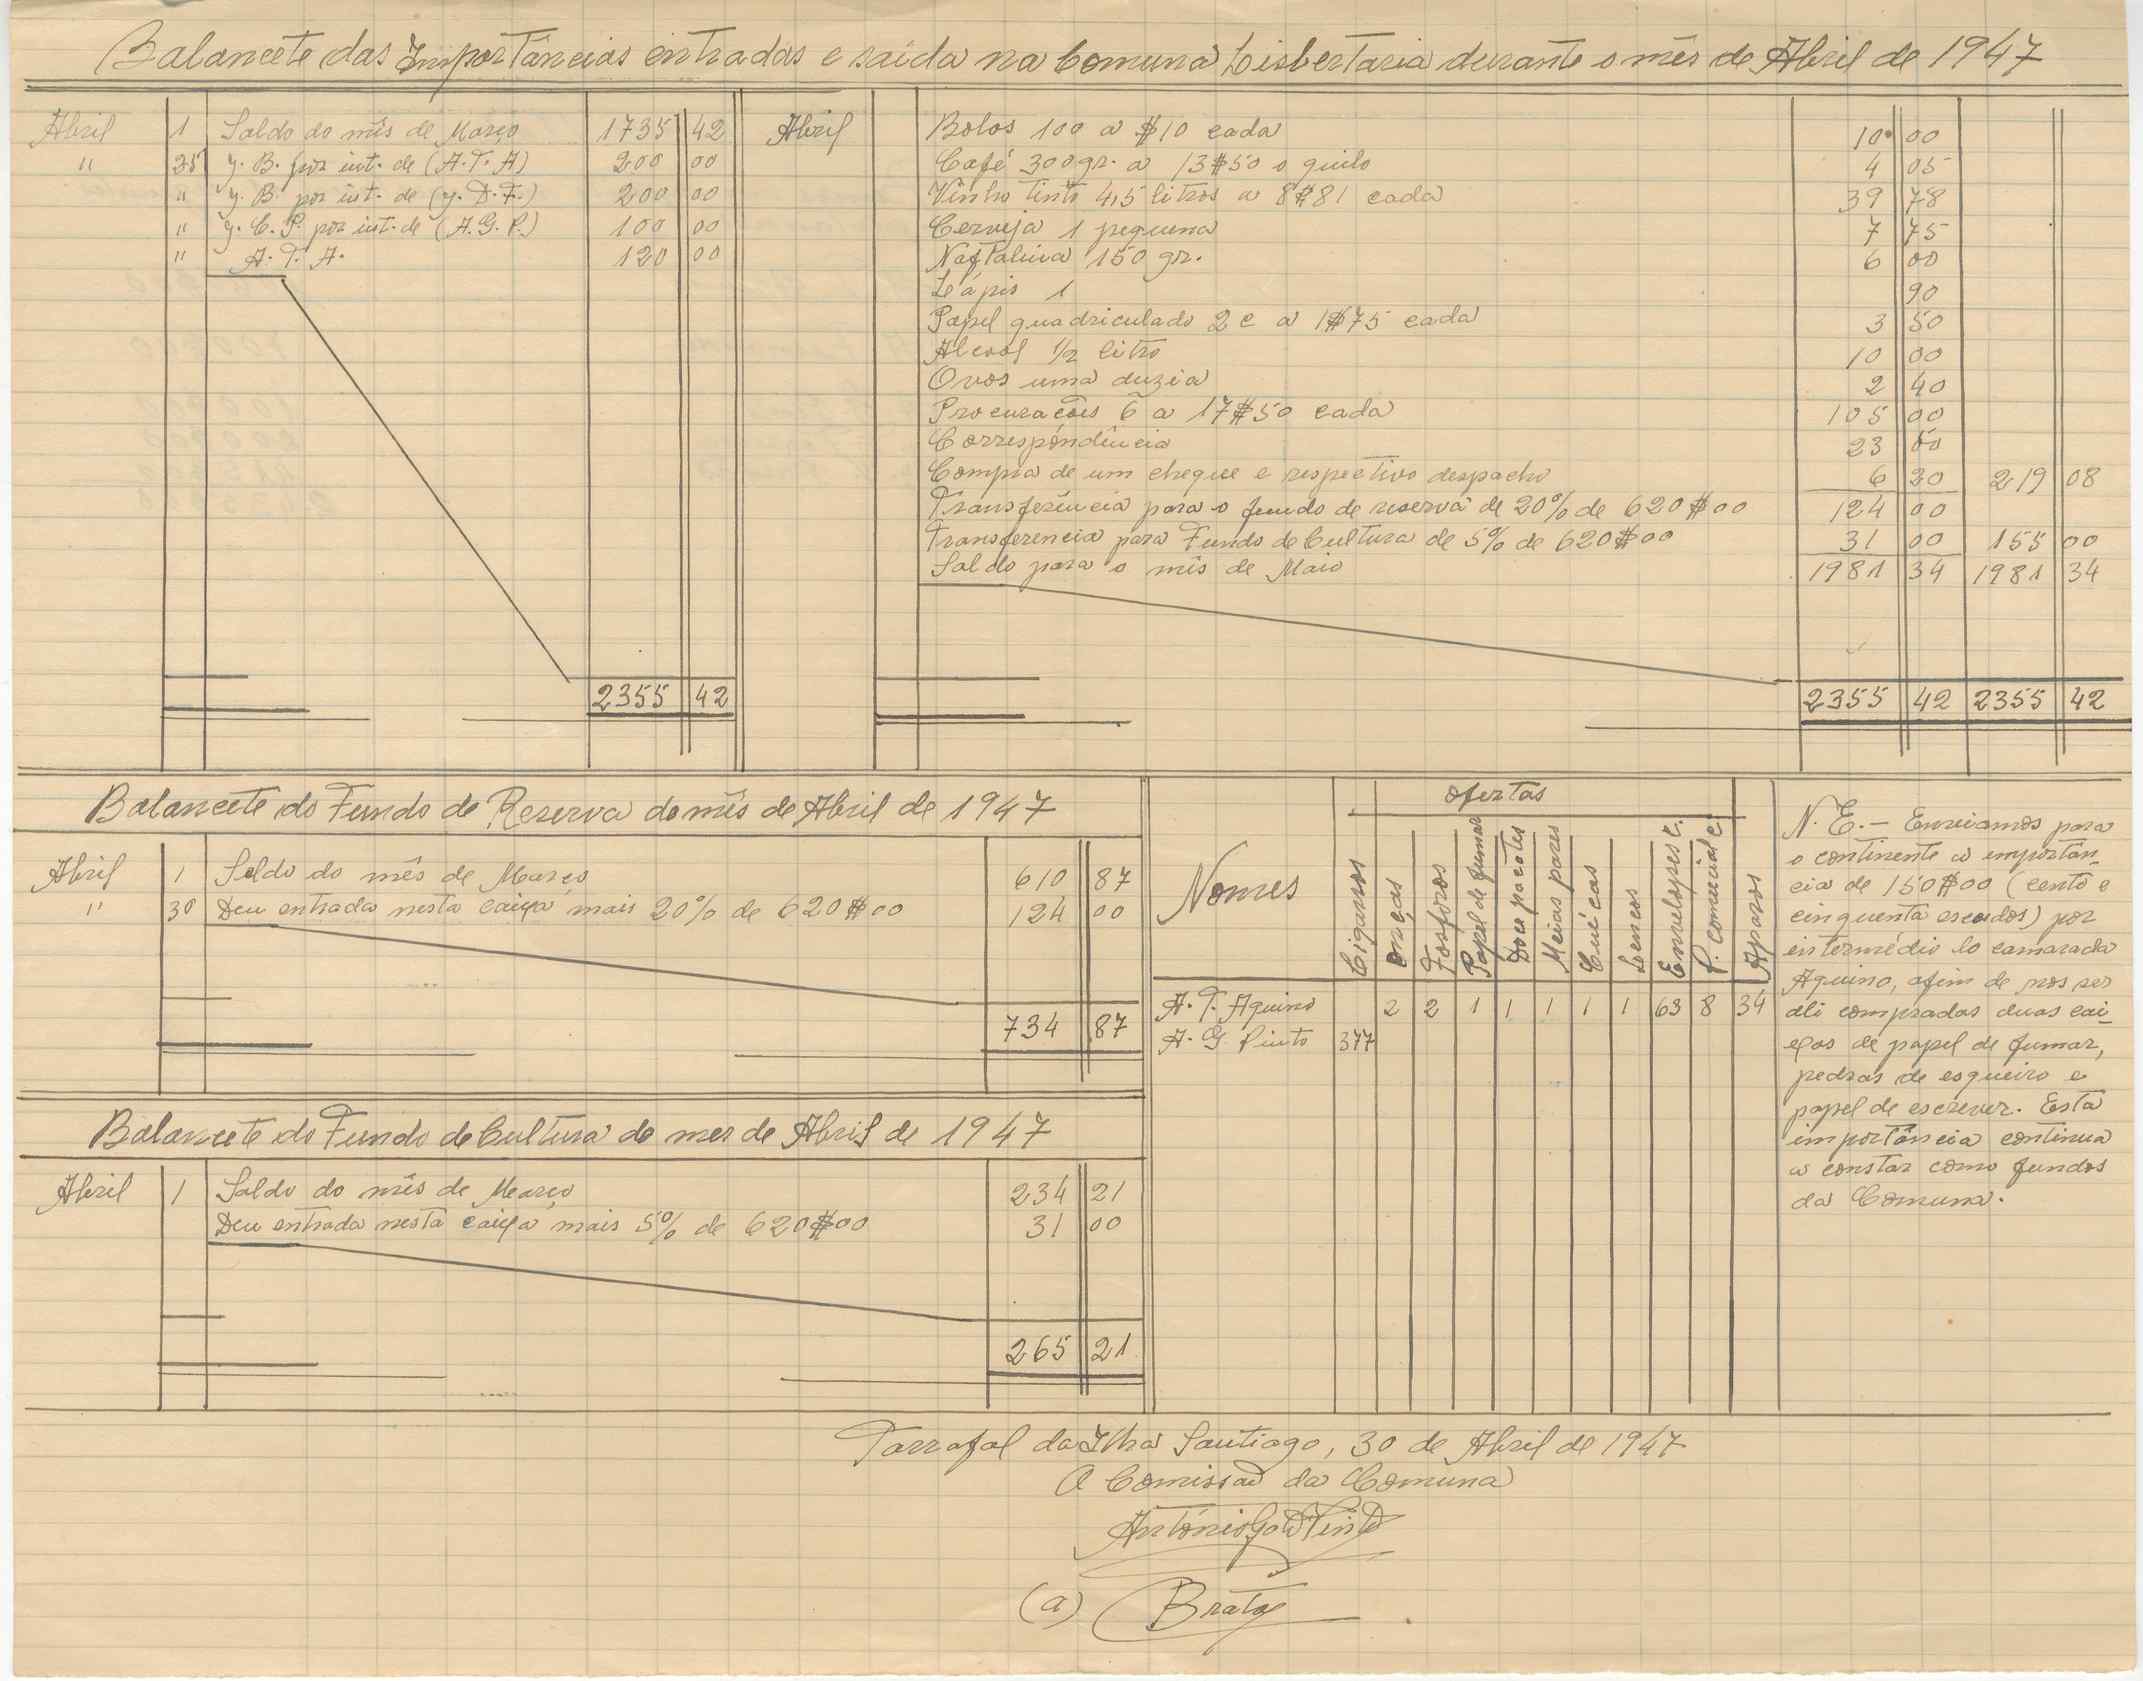 Balancete das Importâncias entradas e saída na Comuna Lisbertaria durante o mês de Abril de 1947
Abril 1 Saldo do mês de Março 1735 42
" 25 J. B. por int. de (A. T. A) 200 00
" J. B. por int. de (J. D. F.) 200 00
" J. C. P. por int. de (A. G. P.) 100 00
" A. T. A. 120 00
2355 42
Abril Bolos 100 a $10 cada 10 00
Café 300 gr. a 13$50 o quilo 4 05
Vinho tinto 4,5 litros a 8$81 cada 39 78
Cerveja 1 pequena 7 75
Naftalina 150 gr. 6 00
Leápis 1 90
Papel quadriculado 2 c a 1$75 cada 3 50
Alcool 1/2 litro 10 00
Ovos uma duzia 2 40
Procurações 6 a 17$50 cada 105 00
Correspóndência 23 50
Compra de um cheque e respectivo despacho 6 20 219 08
Transferência para o fundo de reserva de 20% de 620$00 124 00
Transferencia para Fundo de Cultura de 5% de 620$00 31 00 155 00
Saldo para o mês de Maio 1981 34 1981 34
2355 42 2355 42
Balancete do Fundo de Reserva do mês de Abril de 1947
Abril 1 Saldo do mês de Março 610 87
" 30 Deu entrada nesta caixa mais 20% de 620$00 124 00
734 87
Balancete do Fundo de Cultura do mes de Abril de 1947
Abril 1 Saldo do mês de Março 234 21
Deu entrada nesta caixa mais 5% de 620$00 31 00
265 21
Ofertas
Nomes Cigarros Onças Fosforos Papél de fumar Doce pacotes Meias pares Cuécas Loencos Envelopes c. P. comercial c. Aparos
A. T. Aquino 2 2 1 1 1 1 1 63 8 34
A. G. Pinto 377
N. E. — Enviamos para
o continente a importân-
cia de 150$00 (cento e
cinquenta escudos) por
intermédio lo camarada
Aquino, afim de nos ser
ali compradas duas cai-
xas de papel de fumar,
pedras de esqueiro e
papel de escrever. Esta
importância continua
a constar como fundos
da Comuna.
Tarrafal da Ilha Santiago, 30 de Abril de 1947
A Comissão da Comuna
António Gato Pinto
(a)